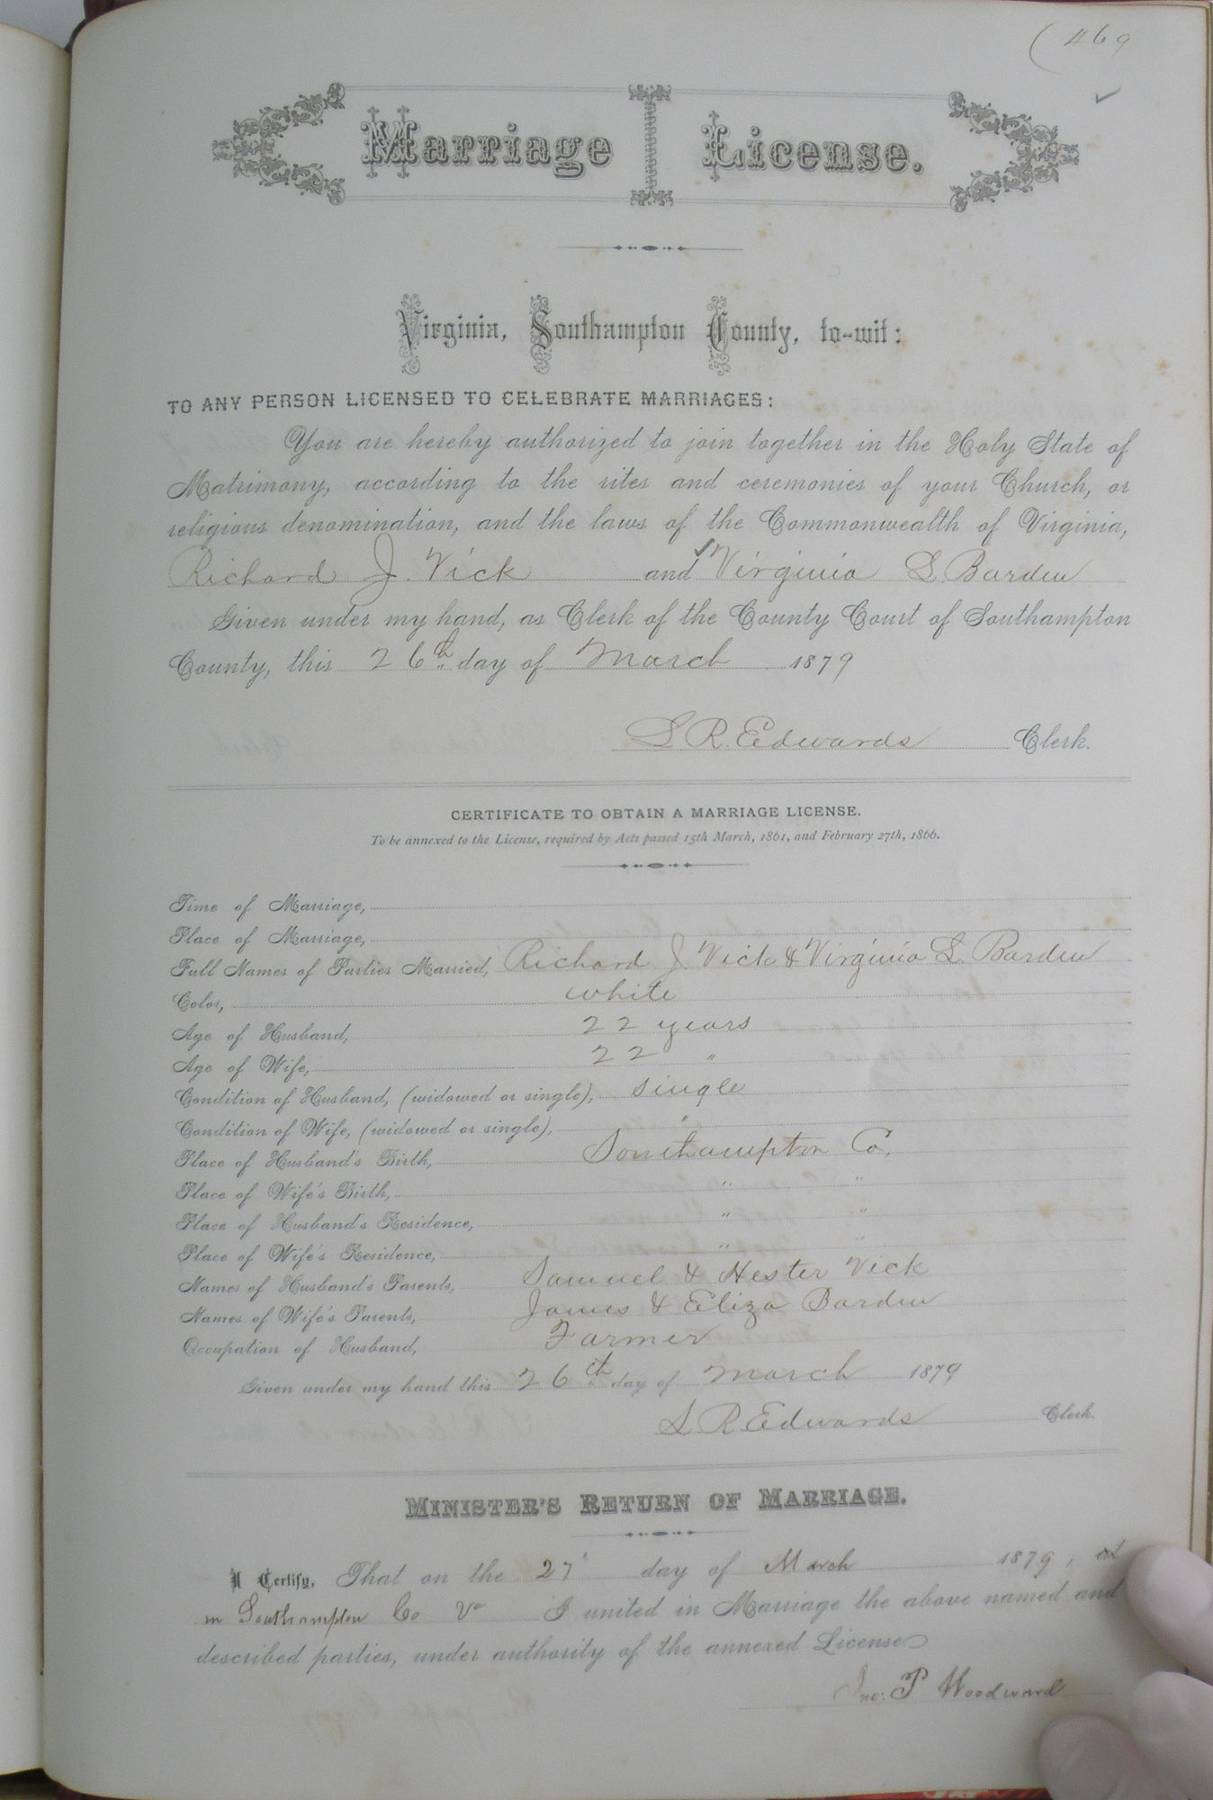 (469
Marriage License.
Virginia, Southampton County, to-wit:
TO ANY PERSON LICENSED TO CELEBRATE MARRIAGES:
You are hereby authorized to join together in the Holy State of
Matrimony, according to the rites and ceremonies of your Church, or
religious denomination, and the laws of the Commonwealth of Virginia,
Richard J. Vick and Virginia S. Barden
Given under my hand, as Clerk of the County Court of Southampton
County, this 26th day of March 1879
L R. Edwards Clerk.
CERTIFICATE TO OBTAIN A MARRIAGE LICENSE.
To be annexed to the License, required by Acts passed 15th March, 1861, and February 27th, 1866.
Time of Marriage,
Place of Marriage,
Full Names of Parties Married, Richard J. Vick & Virginia S. Barden
Color, white
Age of Husband, 22 years
Age of Wife, 22 "
Condition of Husband, (widowed or single), single
Condition of Wife, (widowed or single), "
Place of Husband's Birth, Southampton Co.
Place of Wife's Birth, " "
Place of Husband's Residence, " "
Place of Wife's Residence, " "
Names of Husband's Parents, Samuel & Hester Vick
Names of Wife's Parents, James & Eliza Barden
Occupation of Husband, Farmer
Given under my hand this 26th day of March 1879
L R Edwards Clerk.
MINISTER'S RETURN OF MARRIAGE.
I Certify, That on the 27' day of March 1879, at
in Southampton Co Va I united in Marriage the above named and
described parties, under authority of the annexed License
Jno: P Woodward